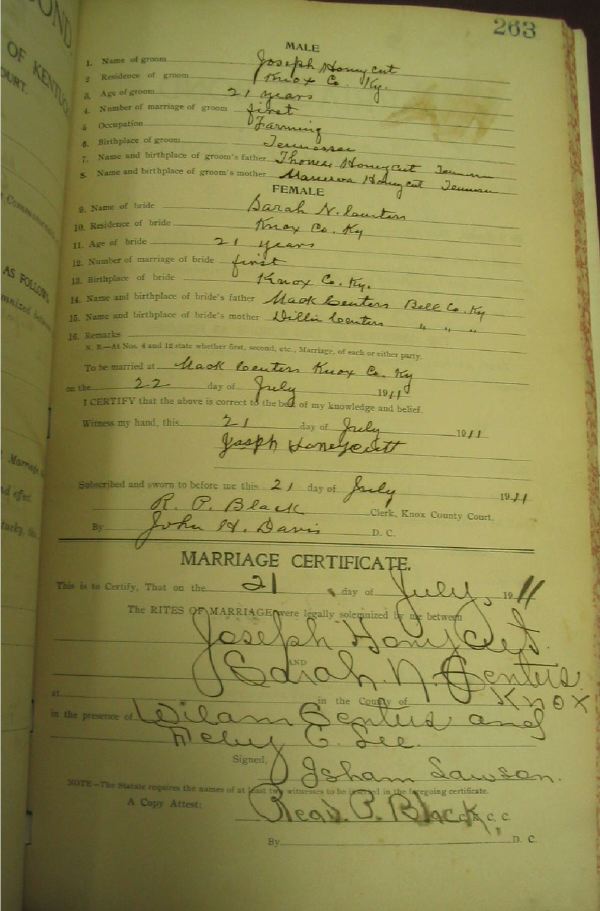 263
OND.
OF KENTUC
OURT.
AS FOLLOWS
MALE
1. Name of groom Joseph Honycut
2 Residence of groom Knox Co. Ky.
3. Age of groom 21 years
4. Number of marriage of groom first
5 Occupation Farming
6. Birthplace of groom Tennessee
7. Name and birthplace of groom's father Thomas Honycut
8. Name and birthplace of groom's mother Honycut
FEMALE
9. Name of bride Sarah N. Centers
10. Residence of bride Knox Co. Ky
11. Age of bride 21 years
12. Number of marriage of bride first
13. Birthplace of bride Knox Co. Ky.
14. Name and birthplace of bride's father Mack Centers Bell Co. Ky
15. Name and birthplace of bride's mother Dillie Centers " " "
16. Remarks
N. B.—At Nos. 4 and 12 state whether first, second, etc., Marriage, of each or either party.
To be married at Mack Centers Knox Co. Ky
on the 22 day of July 1911
I CERTIFY that the above is correct to the best of my knowledge and belief.
Witness my hand, this 21 day of July 1911
Joseph Honeycutt
Subscribed and sworn to before me this 21 day of July 1911
R. P. Black Clerk, Knox County Court.
By John H. Davis D. C.
MARRIAGE CERTIFICATE.
This is to Certify, That on the 21 day of July, 1911
The RITES OF MARRIAGE were legally solemnized by me between
Joseph Honycut.
AND
Sarah N. Centus
at in the County of Knox
in the presence of Wilam Centus and
C. Lee.
Signed, Isham Lawson.
NOTE—The Statute requires the names of at least two witnesses to be inserted in the foregoing certificate.
A Copy Attest: Read. P. Black, C. C.
By D. C.